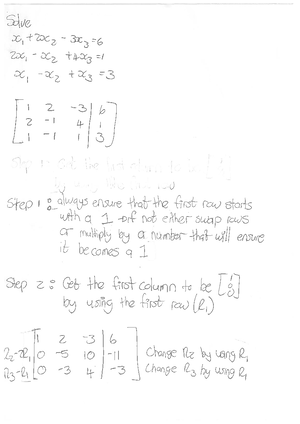 Solve
x₁ + 2x₂ - 3x₃ = 6
2x₁ - x₂ + 4x₃ = 1
x₁ - x₂ + x₃ = 3
[ 1 2 -3 | 6 ]
[ 2 -1 4 | 1 ]
[ 1 -1 1 | 3 ]
Step 1 : always ensure that the first row starts
with a 1 - if not either swap rows
or multiply by a number that will ensure
it becomes a 1
Step 2 : Get the first column to be [ 1 0 0 ]
by using the first row (R₁)
[ 1 2 -3 | 6 ]
R₂-2R₁ [ 0 -5 10 | -11 ] Change R₂ by using R₁
R₃-R₁ [ 0 -3 4 | -3 ] Change R₃ by using R₁